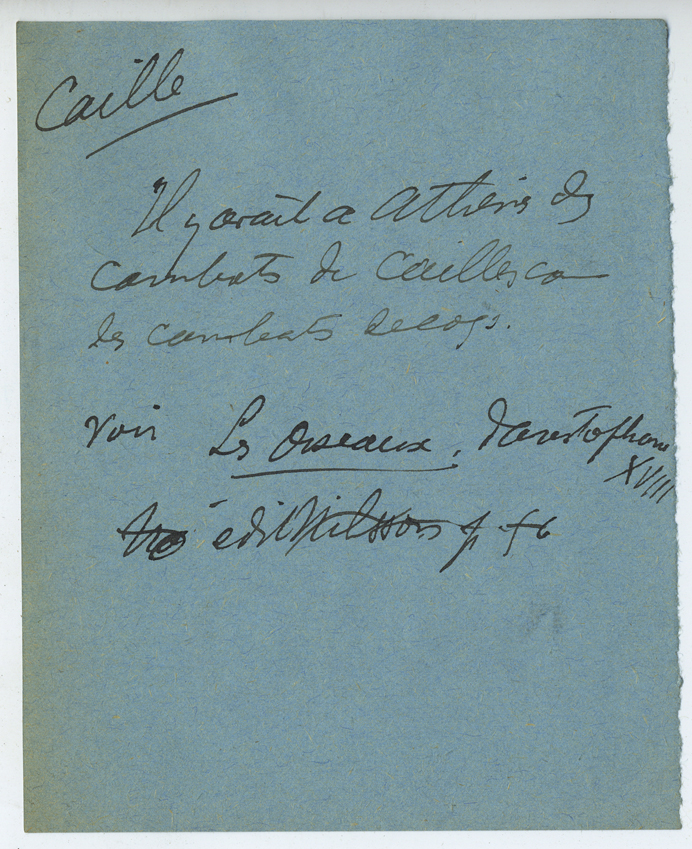 Caille
Il y avait a Athènes des
combats de Cailles co
des combats de coqs.
Voir Les Oiseaux, d'Aristophane
XVIII
édit p